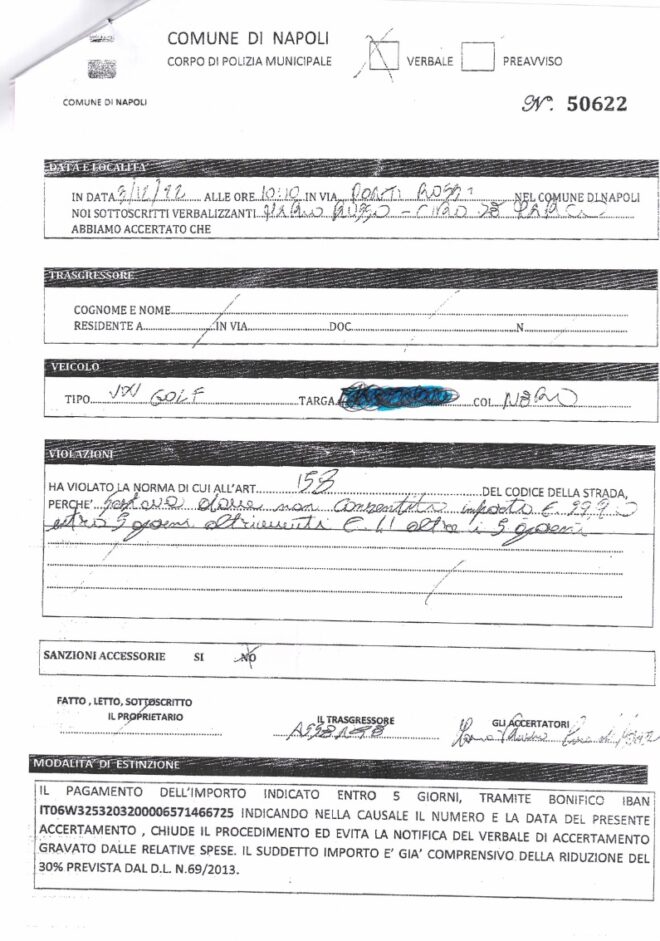 COMUNE DI NAPOLI
CORPO DI POLIZIA MUNICIPALE
VERBALE
PREAVVISO
COMUNE DI NAPOLI
N. 50622
DATA E LOCALITA'
IN DATA ALLE ORE 10:10 IN VIA PONTI ROSSI NEL COMUNE DI NAPOLI
NOI SOTTOSCRITTI VERBALIZZANTI
ABBIAMO ACCERTATO CHE
TRASGRESSORE
COGNOME E NOME
RESIDENTE A IN VIA DOC N
VEICOLO
TIPO VW GOLF TARGA COL NERO
VIOLAZIONI
HA VIOLATO LA NORMA DI CUI ALL'ART. 158 DEL CODICE DELLA STRADA,
PERCHE' Sostava dove non consentito importo E.
entro 5 giorni altrimenti E. 41 oltre i 5 giorni
SANZIONI ACCESSORIE SI NO
FATTO , LETTO, SOTTOSCRITTO
IL PROPRIETARIO
IL TRASGRESSORE
GLI ACCERTATORI
ASSENTE
MODALITA' DI ESTINZIONE
IL PAGAMENTO DELL'IMPORTO INDICATO ENTRO 5 GIORNI, TRAMITE BONIFICO IBAN
IT06W3253203200006571466725 INDICANDO NELLA CAUSALE IL NUMERO E LA DATA DEL PRESENTE
ACCERTAMENTO , CHIUDE IL PROCEDIMENTO ED EVITA LA NOTIFICA DEL VERBALE DI ACCERTAMENTO
GRAVATO DALLE RELATIVE SPESE. IL SUDDETTO IMPORTO E' GIA' COMPRENSIVO DELLA RIDUZIONE DEL
30% PREVISTA DAL D.L. N.69/2013.